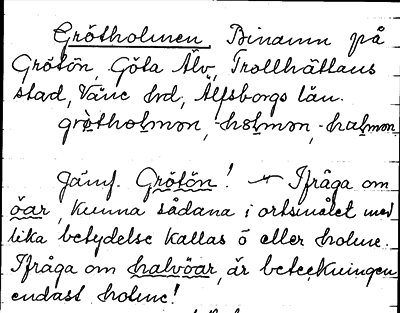 Grötholmen, Binamn på
Grötön, Göta Älv, Trollhättans
stad, Väne hd, Älfsborgs län.
grötholmən, -hólmən, -halmən
Jämf. Grötön! Ifråga om
öar, kunna sådana i ortsmålet med
lika betydelse kallas ö eller holme.
Ifråga om halvöar, är beteckningen
endast holme!